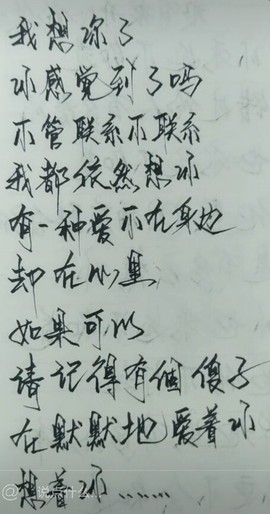 我想你了
你感觉到了吗
不管联系不联系
我都依然想你
有一种爱不在身边
却在心里
如果可以
请记得有個傻子
在默默地爱着你
想着你……